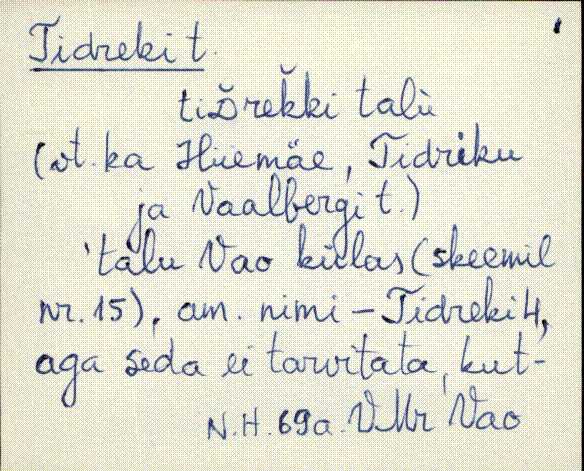 Tidreki t.
tiDreǩki talù
(vt. ka Hiiemäe, Tidriku
ja Vaalbergi t.)
'talu Vao külas (skeemil
nr. 15), am. nimi - Tidreki 4,
aga seda ei tarvitata, kut-
N.H. 69a. VMr Vao